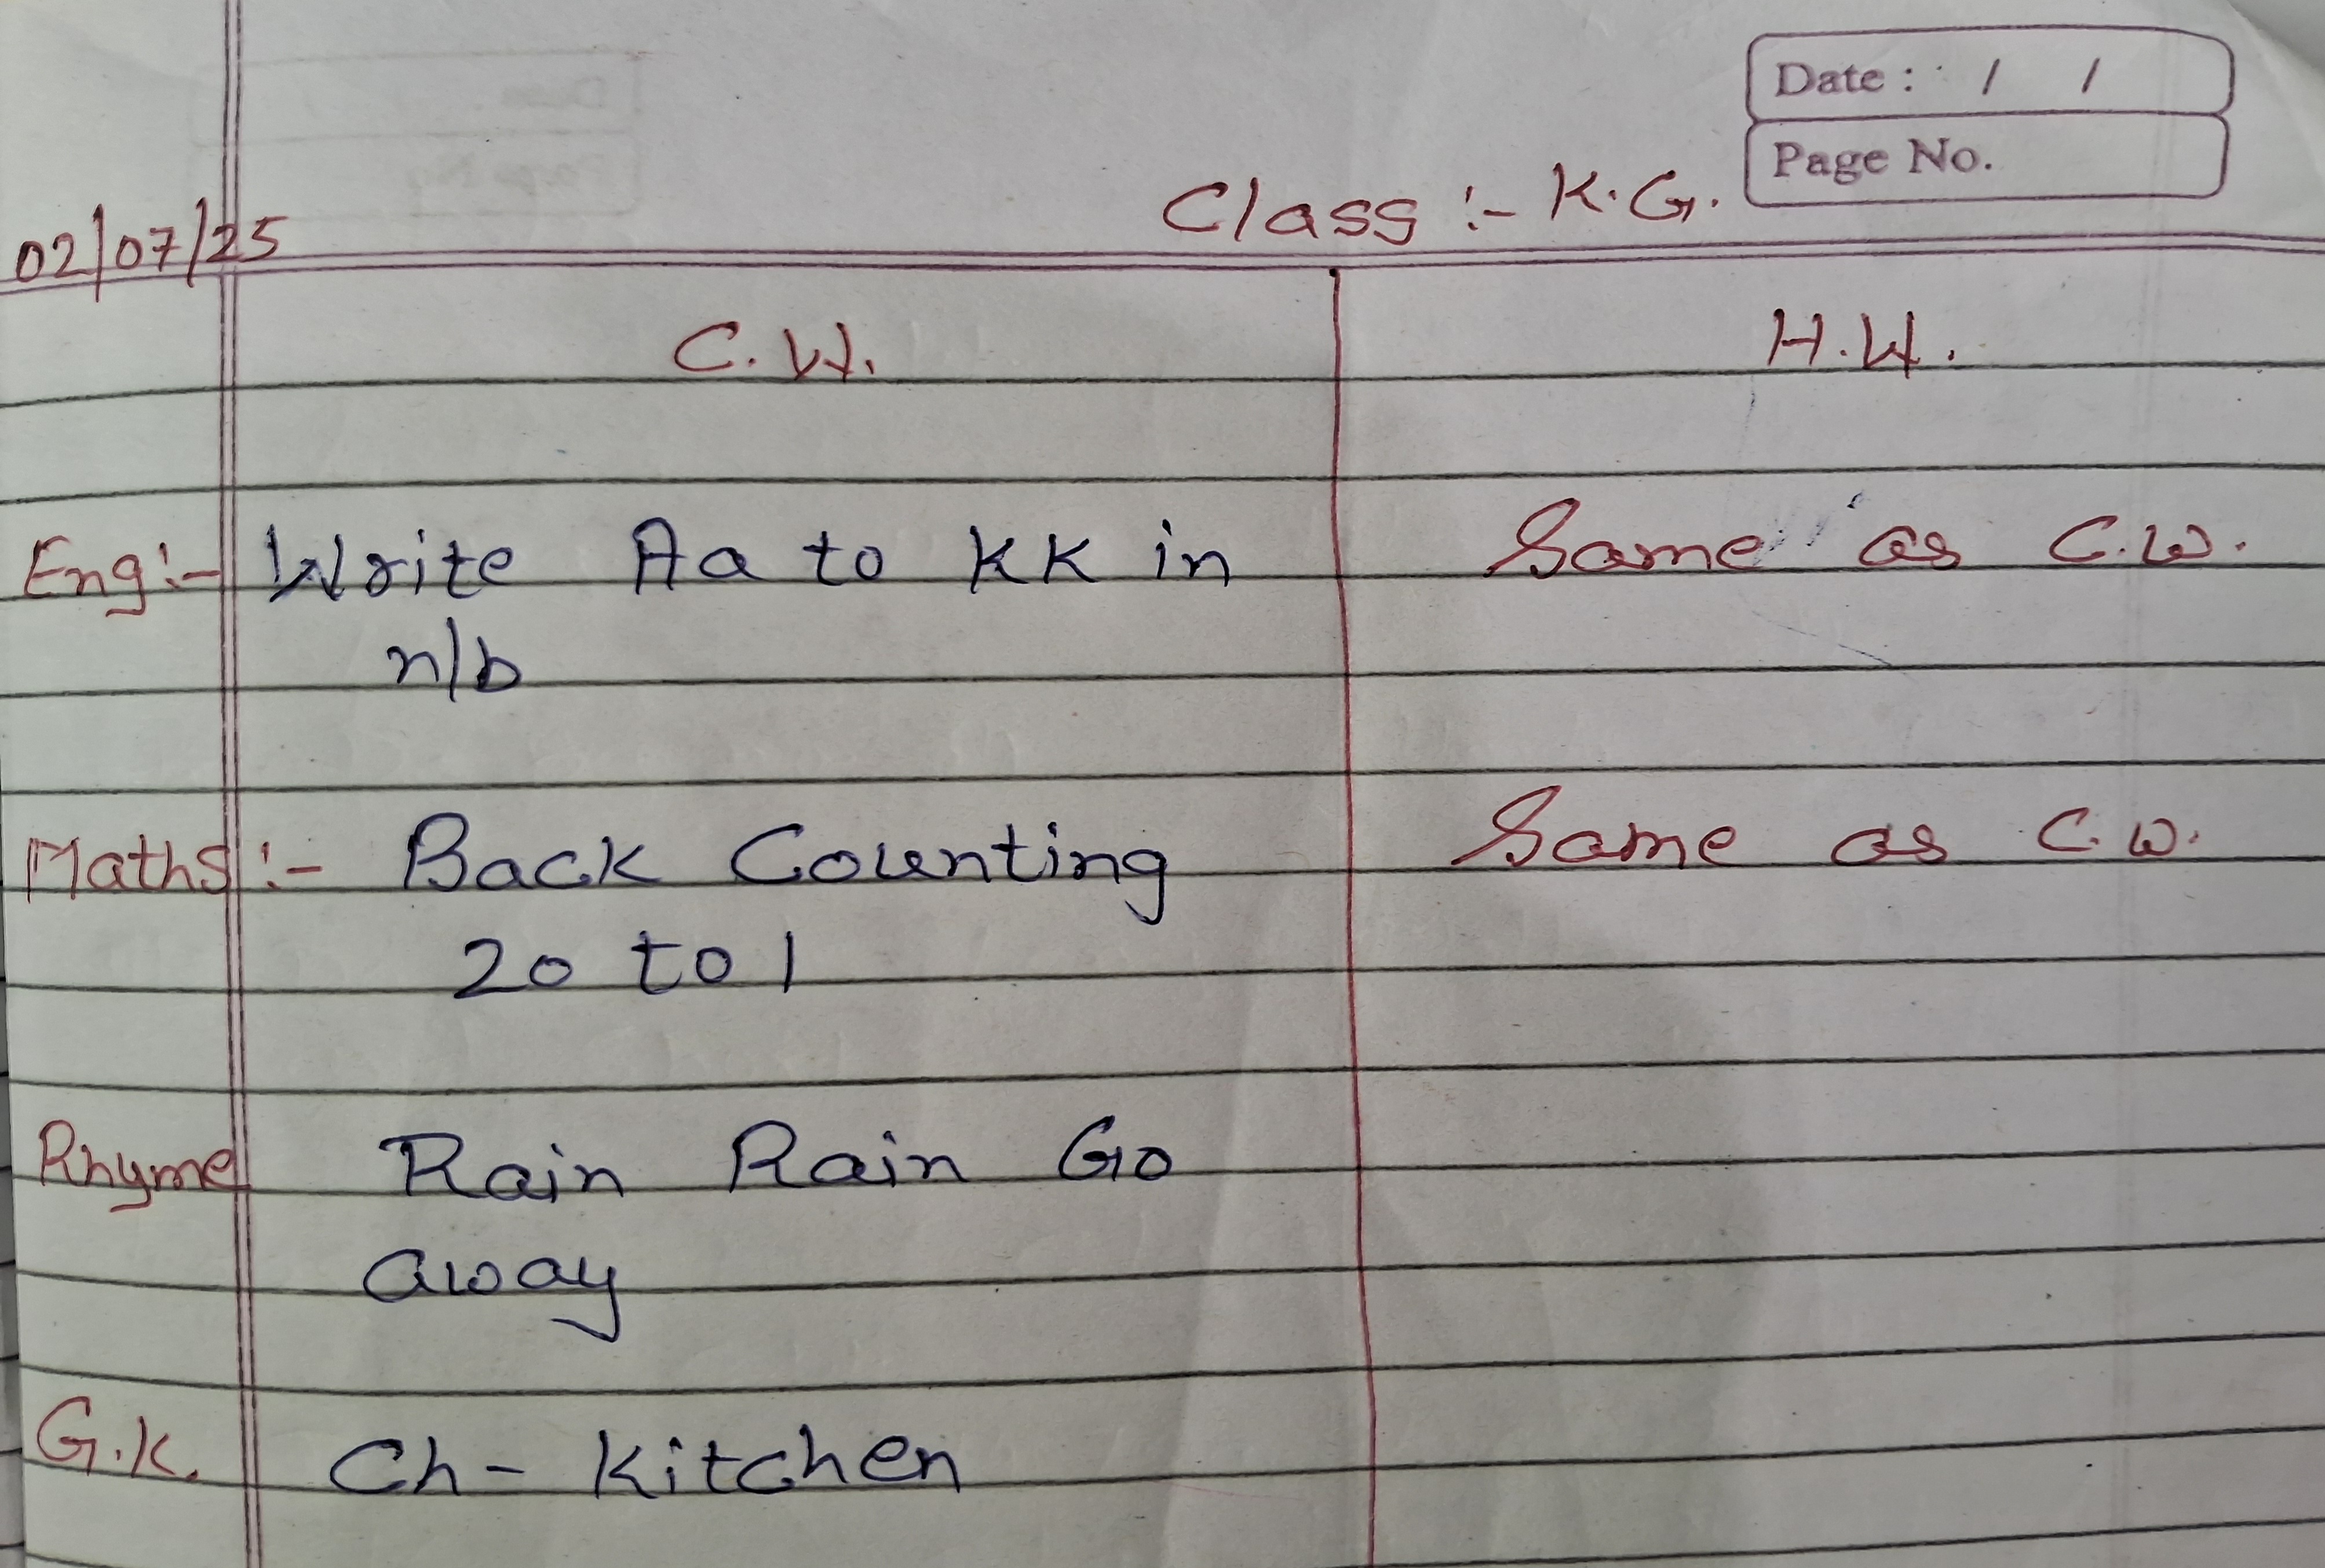 Date : / /
Page No.
Class :- K.G.
02/07/25
C.W. H.W.
Eng:- Write Aa to KK in Same as C.W.
n/b
Maths :- Back Counting Same as C.W.
20 to 1
Rhyme Rain Rain Go
away
G.K. Ch- Kitchen